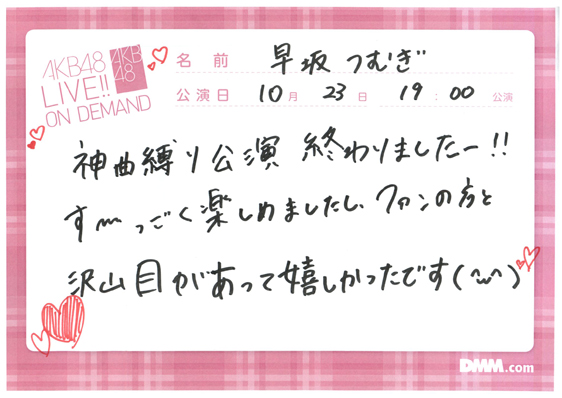 AKB48
LIVE!!
ON DEMAND
AKB
48
名前 早坂つむぎ
公演日 10月 23日 19:00 公演
神曲縛り公演 終わりましたー!!
す〰っごく楽しめましたし、ファンの方と
沢山目があって嬉しかったです(〰)
DMM.com